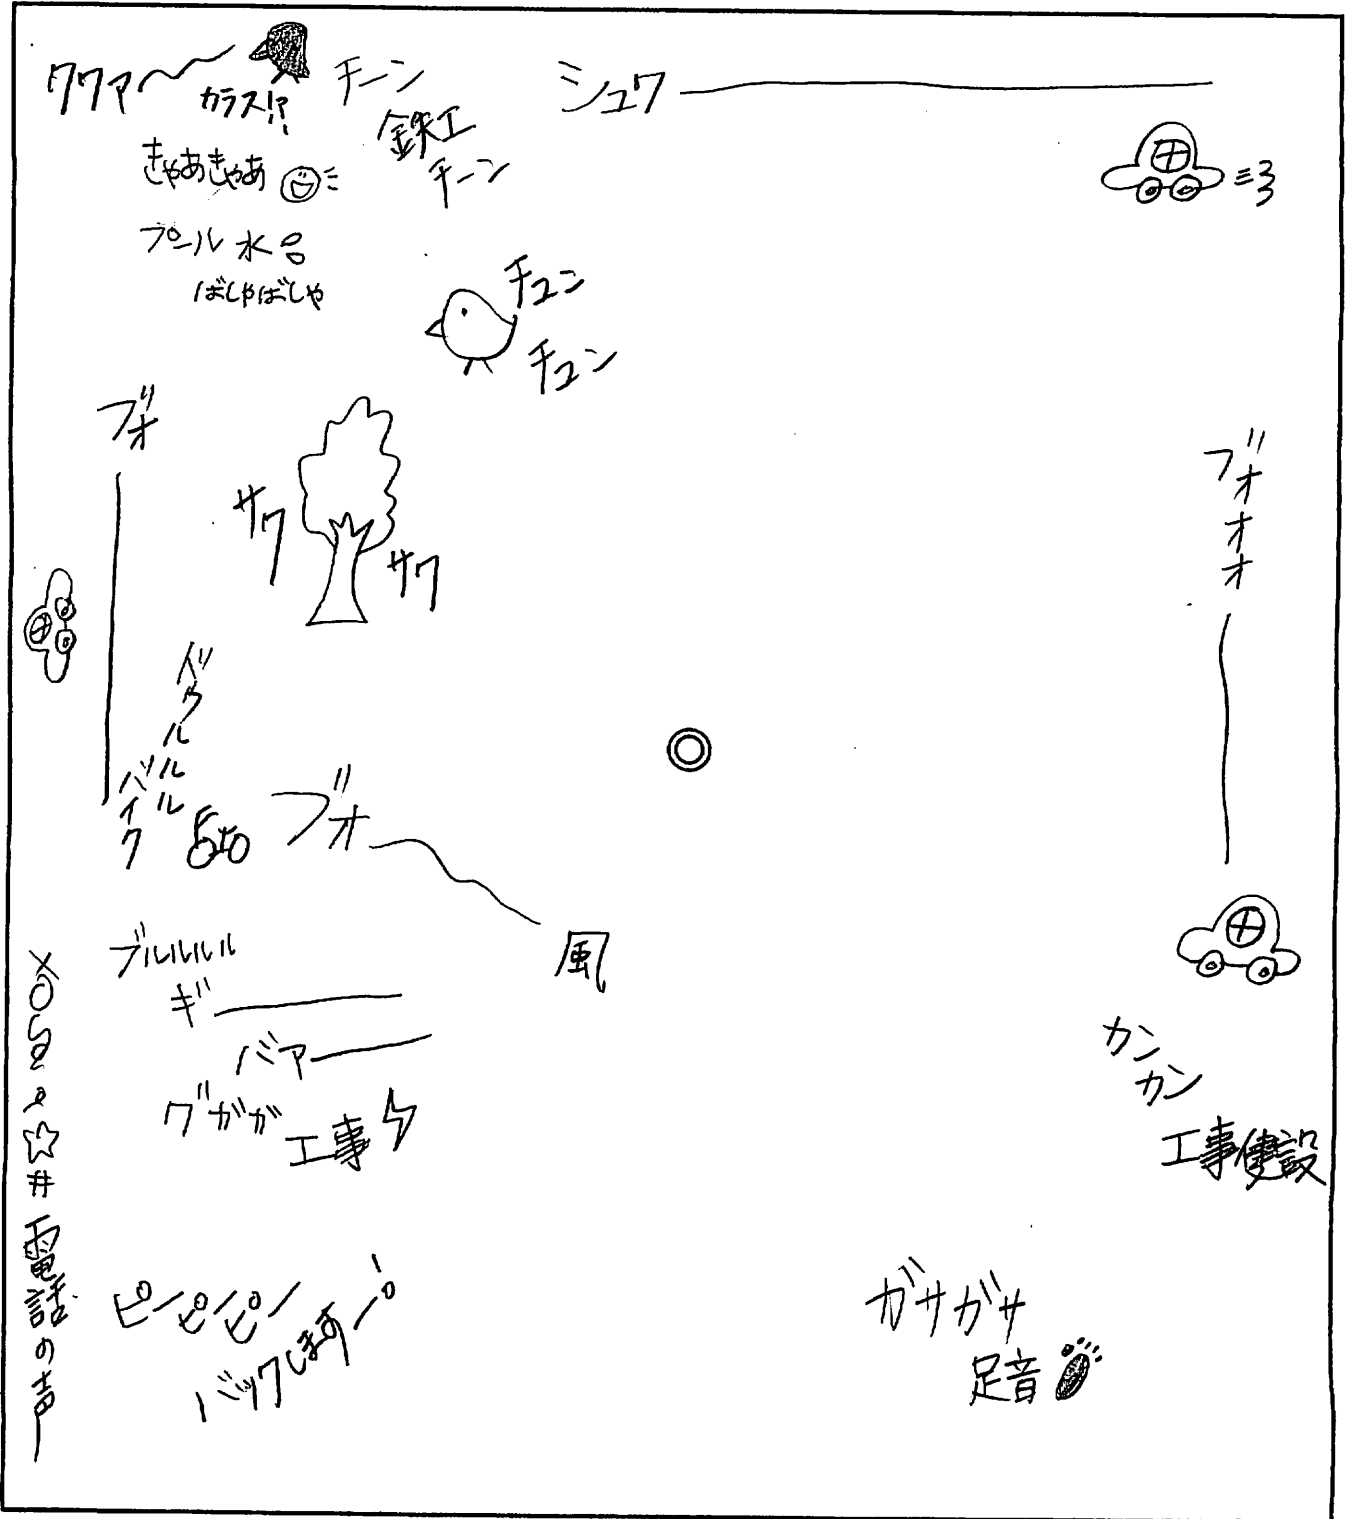 クワァ〜
カラス!?
チーン
鉄工
チーン
シュワ―
きゃあきゃあ
プール 水呂
ばしゃばしゃ
チュン
チュン
ブォ
サワ
サワ
ブオオオ
バウルルル
バイク
ブオ
風
ブルルルル
ギ―
バァ―
グガガ
工事
カン
カン
工事建設
電話の声
ピーピーピー
バックします
ガサガサ
足音